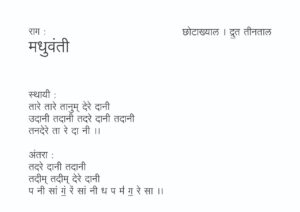 राग :
छोटाख्याल । द्रुत तीनताल
मधुवंती
स्थायी :
तारे तारे तानुम् देरे दानी
उदानी तदानी तदरे दानी तदानी
तनदेरे ता रे दा नी ।।
अंतरा :
तदरे दानी तदानी
तदीम् तदीम् देरे दानी
प नी सां गं॒ रें सां नी ध प म॑ ग॒ रे सा ।।